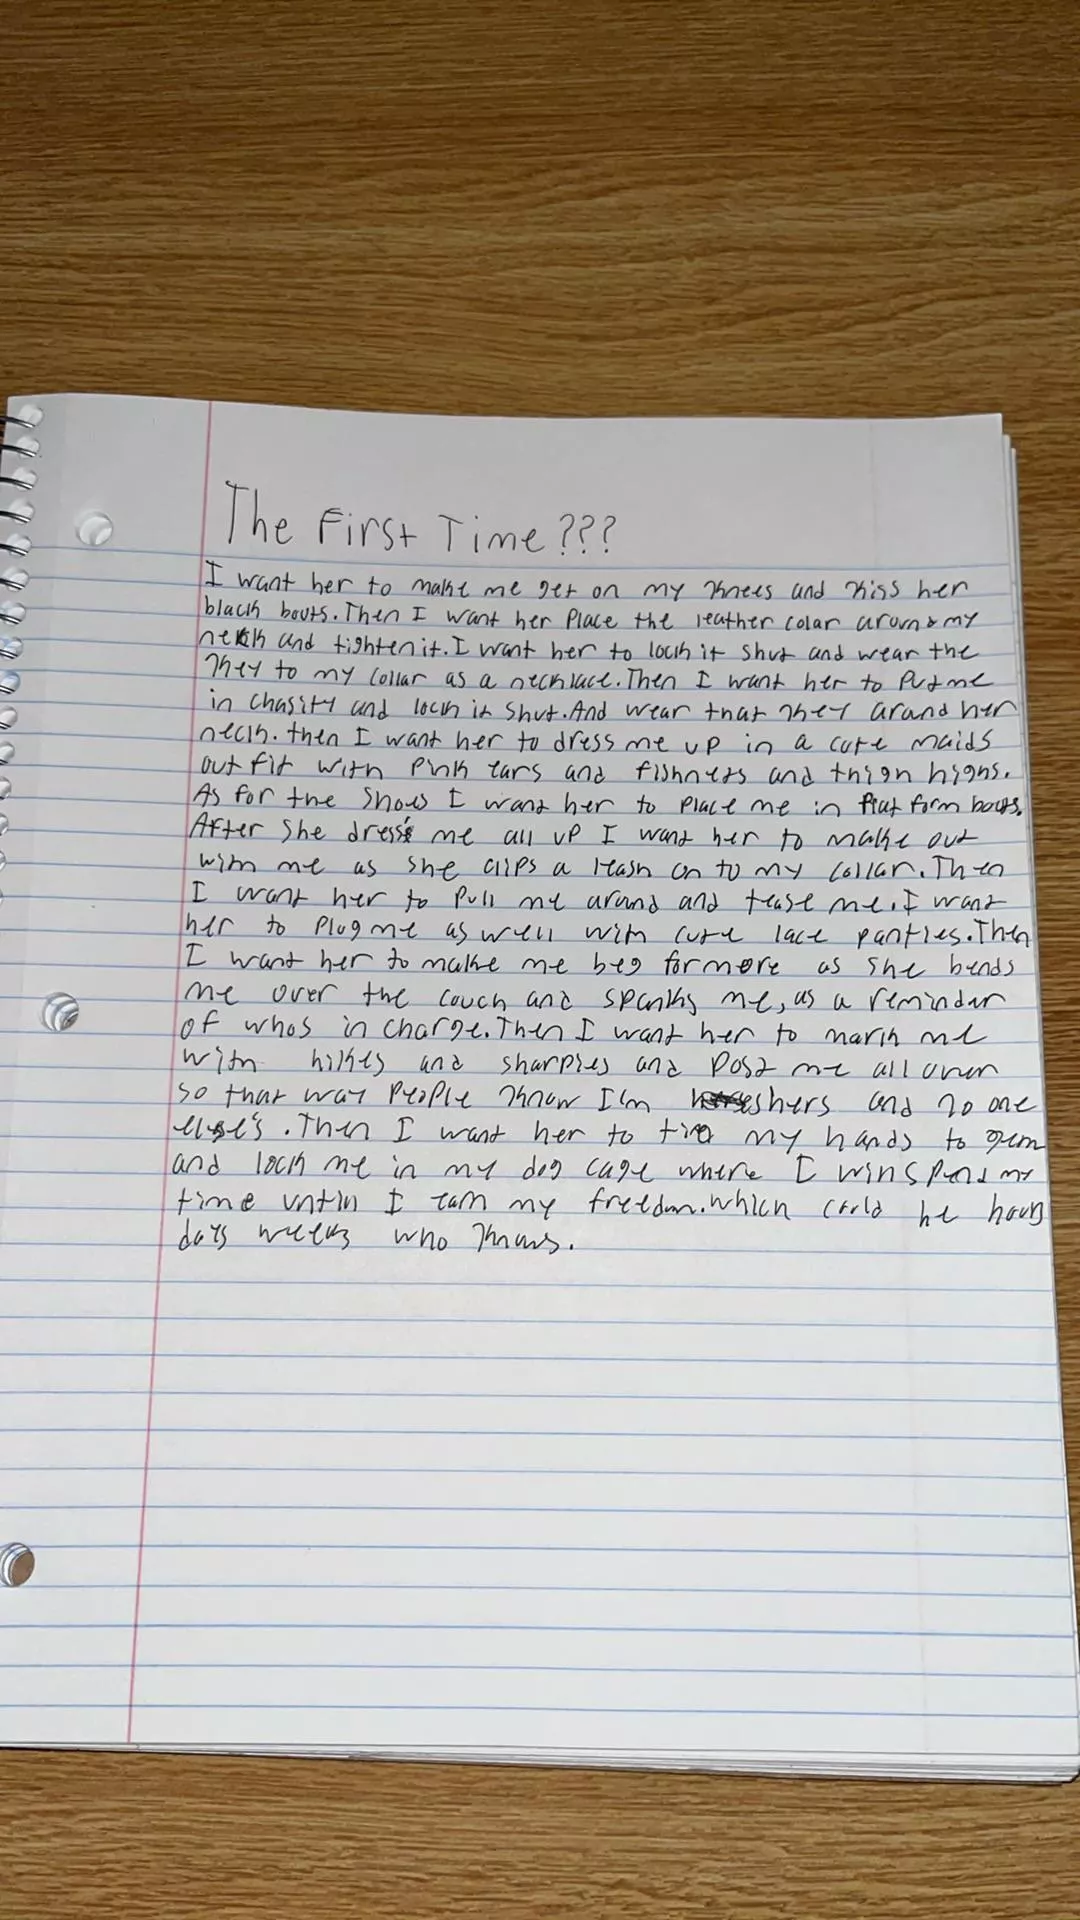 The First Time???
I want her to make me get on my knees and kiss her
black bouts. Then I want her Place the leather colar around my
neck and tighten it. I want her to lock it shut and wear the
key to my collar as a necklace. Then I want her to Put me
in chasity and lock it shut. And wear that key arand her
neck. then I want her to dress me up in a cute maids
outfit with pink ears and fishnets and thigh highs.
As for the shoes I want her to place me in flat form bouts.
After she dresse me all up I want her to make out
with me as she clips a leash on to my collar. Then
I want her to pull me arand and tease me. I want
her to plug me as well with cute lace panties. Then
I want her to make me beg for more as she bends
me over the couch and spanks me, as a reminder
of whos in charge. Then I want her to mark me
with hikes and sharpies and post me all over
so that way people know I'm hers and no one
else's. Then I want her to tie my hands to
and lock me in my dog cage where I will spend my
time until I earn my freedom. which could be hours
days weeks who knows.